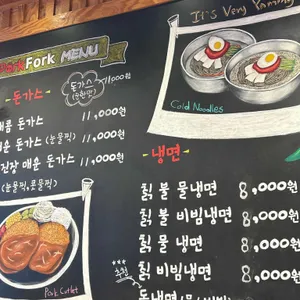 Fork MENU
It's Very Yammy
돈가스
(순한맛) 11,000원
- 돈가스
매콤 돈가스 11,000원
매운 돈가스 (눈물찍) 11,000원
진장 매운 돈가스 11,000원
(눈물찍, 콧물찍)
Cold Noodles
- 냉면
칡 불 물냉면 8,000원
칡 불 비빔냉면 8,000원
칡 물 냉면 8,000원
칡 비빔냉면 8,000원
추천
돈냉면
Pork Cutlet